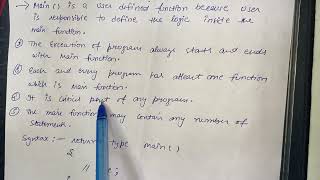 → Main() is a user defined function because user
is responsible to define the logic inside the
main function.
③ The Execution of program always starts and ends
with Main function.
④ Each and every program has atleast one function
which is main function.
⑤ It is critical part of any program.
⑤ The main function may contain any number of
statement.
Syntax :- return type main()
{
//
;